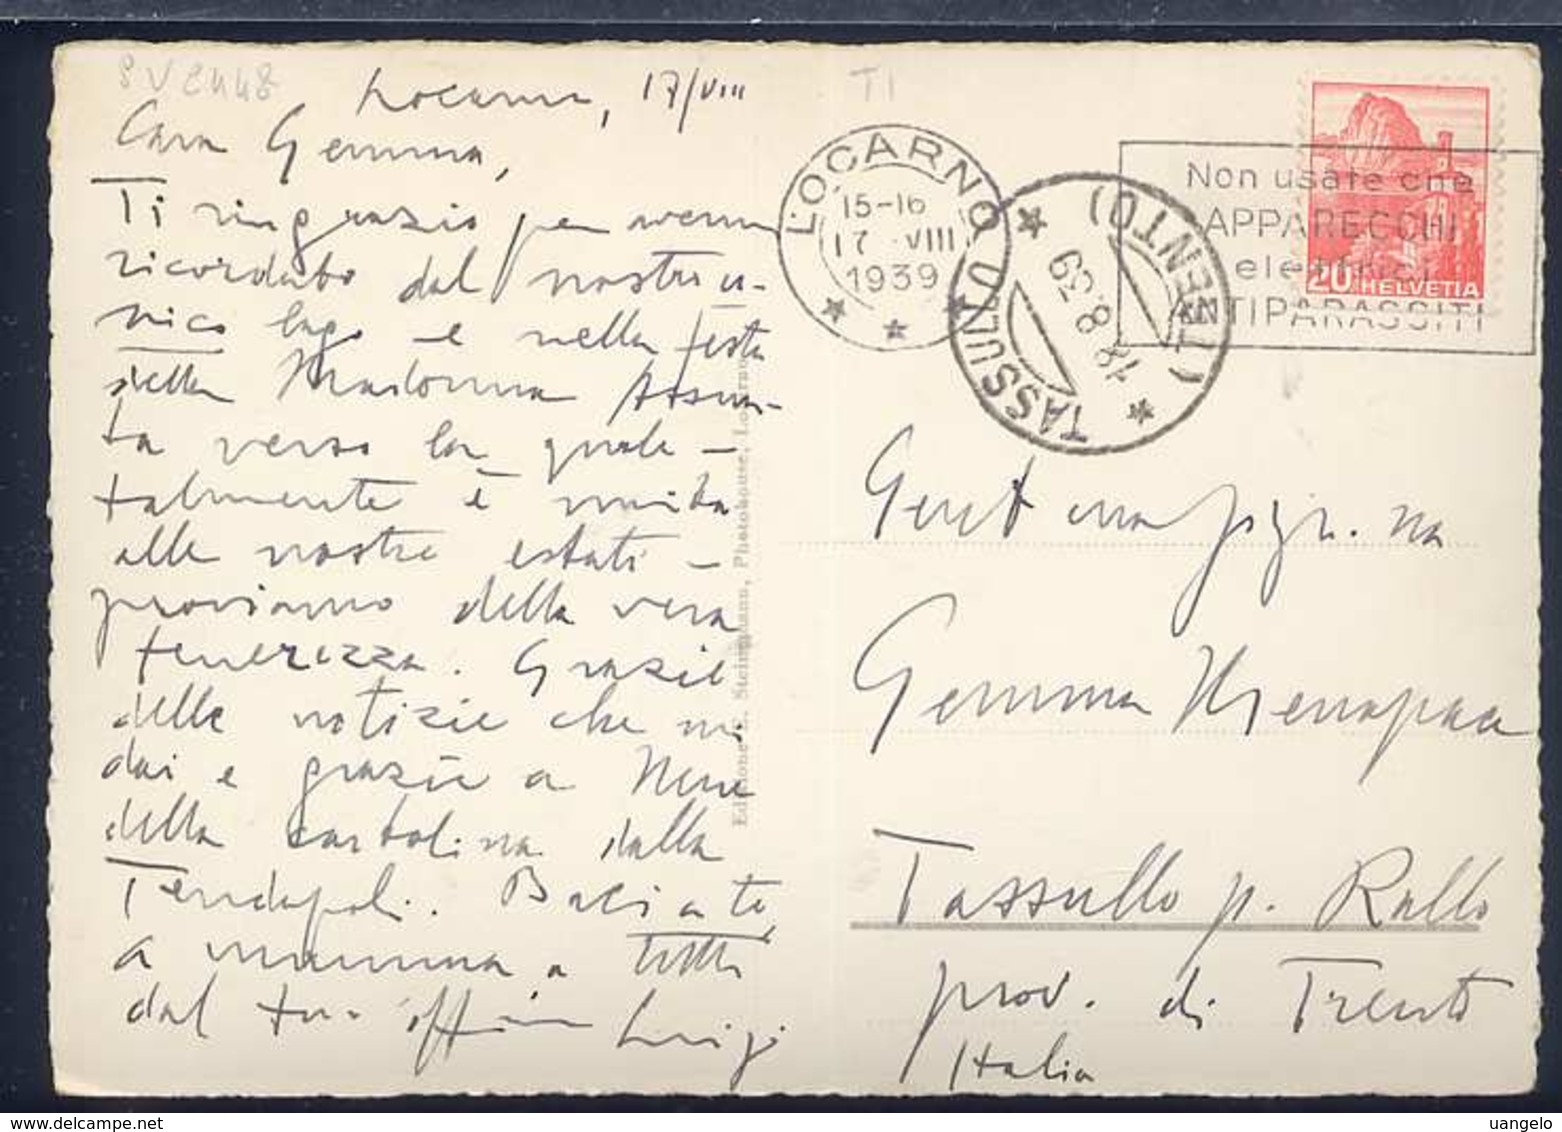 Locarno, 17/VIII
Cara Gemma,
Ti ringrazio per avermi
ricordato dal nostro u-
nico lago e nella festa
della Madonna Assun-
ta verso la quale –
talmente è unita
alle nostre estati –
proviamo della vera
tenerezza. Grazie
delle notizie che mi
dai e grazie a
della cartolina dalla
Tendopoli. Baci a te,
a mamma a tutti
dal tuo aff. Luigi
TI
LOCARNO
15-16
17 VIII
1939
TASSULLO (TRENTO)
18.8.39
Non usate che
APPARECCHI
elettrici
ANTIPARASSITI
20 HELVETIA
Edizione E. Steinemann, Photohouse, Locarno
Gent.ma sign.na
Gemma Menapace
Tassullo p. Rallo
prov. di Trento
Italia
uangelo